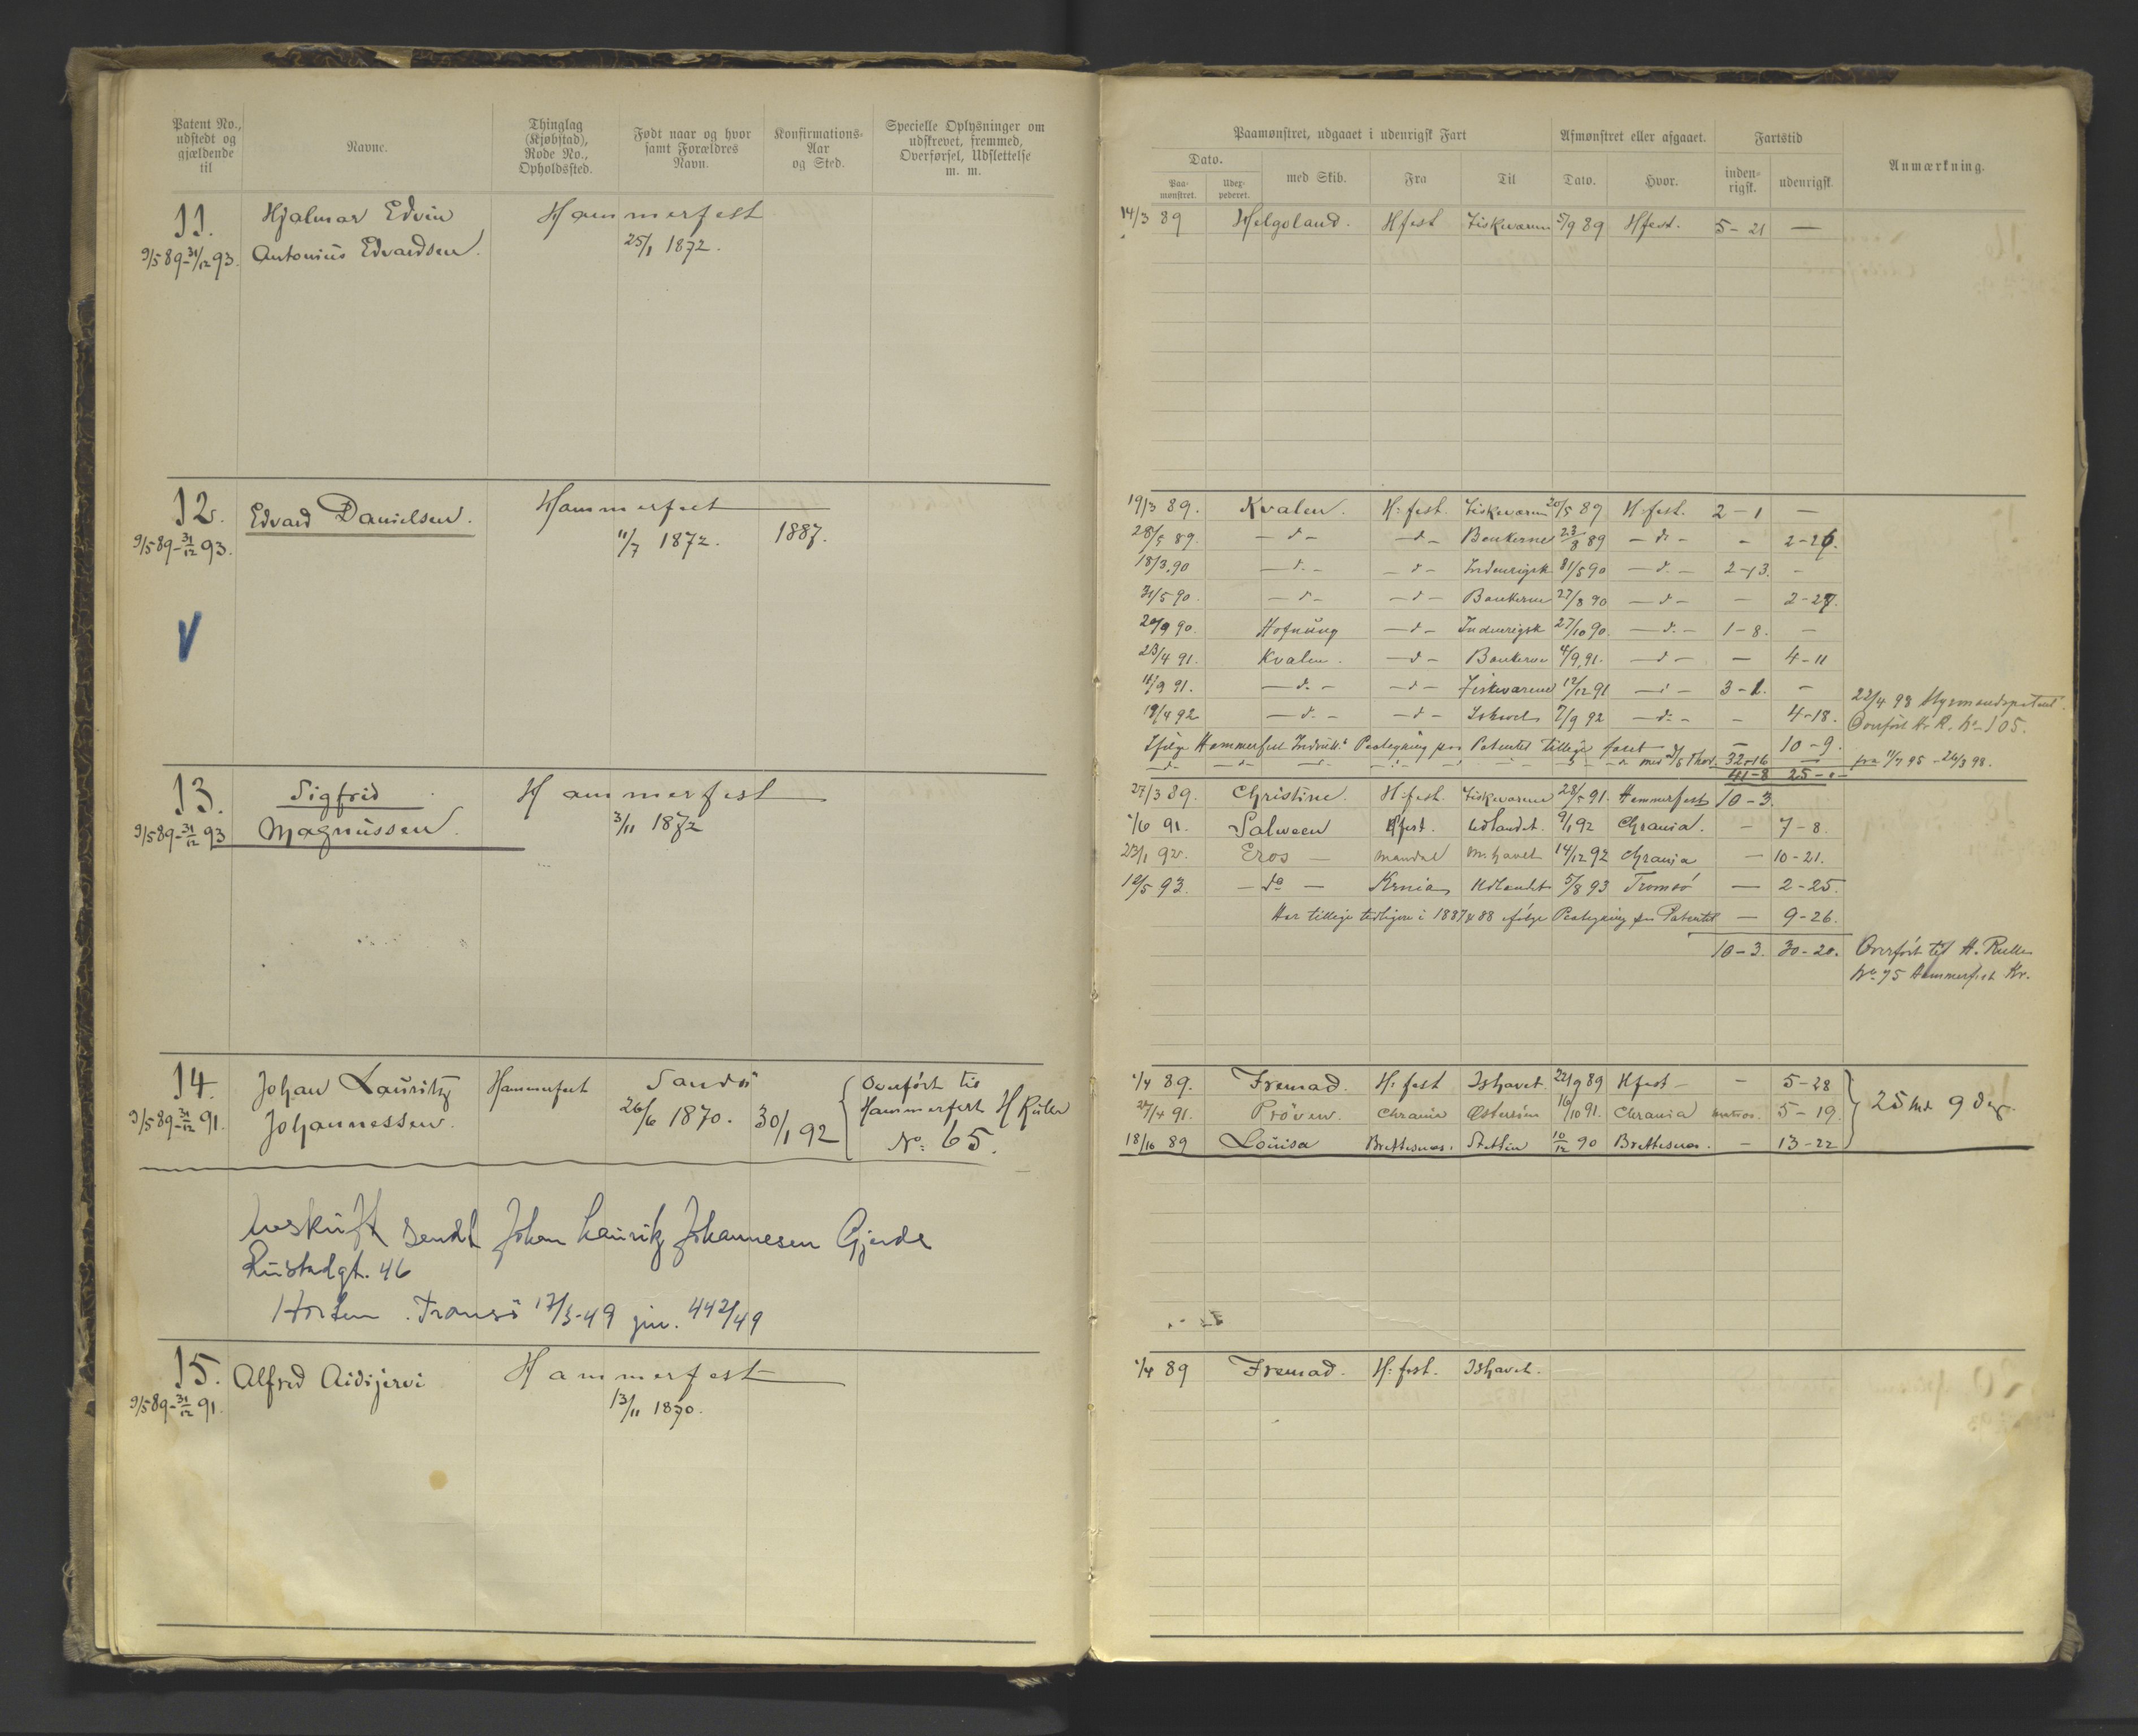 Patent No., udstedt og gjældende til
Navne.
Thinglag (Kjøbstad), Rode No., Opholdssted.
Født naar og hvor samt Forældres Navn.
Konfirmations-Aar og Sted.
Specielle Oplysninger om udskrevet, fremmed, Overførsel, Udslettelse m. m.
11. Hjalmar Edvin Hammerfest
9/5 89-31/12 93. Antonius Edvardsen. 25/1 1872.
12. Edvard Danielsen. Hammerfest
9/5 89-31/12 93. 11/7 1872. 1887.
V
13. Sigfrid Hammerfest
9/5 89-31/12 93 Magnussen. 3/11 1872
14. Johan Lauritz Hammerfest Sandö Overført til
9/5 89-31/12 91. Johannessen. 26/6 1870. 30/1 92 Hammerfest H Rulle
No. 65.
Avskrift sendt Johan Lauritz Johannesen Gjerde
46
Horten. Tromsö 17/3-49 jnr. 442/49
15. Alfred Aidijervi Hammerfest
9/5 89-31/12 91. 13/11 1870.
Paamønstret, udgaaet i udenrigsk Fart
Afmønstret eller afgaaet.
Fartstid
Anmærkning.
Dato.
Paa-mønstret.
Udex-pederet.
med Skib.
Fra
Til
Dato.
Hvor.
inden-rigsk.
udenrigsk.
14/3 89 Helgoland. Hfest Fiskeværene 5/9 89 Hfest. 5-21 —
19/3 89. Kvalen. H:fest. Fiskeværene 20/5 89 H:fest. 2-1 —
28/5 89. -d- -d- Bankerne 23/8 89 -d- - 2-26.
18/3.90 -d.- -d- Indenrigsk 31/5 90 -d.- 2-13. -
31/5 90. -d- -d- Bankerne 27/8 90 -d- - 2-27.
20/9 90. Hofnung -d- Indenrigsk 27/10 90. -d.- 1-8. -
23/4 91. Kvalen. -d- Bankerne 4/9.91. -d- - 4-11
11/9 91. -d.- -d- Fiskeværene 12/12 91 -d- 3-1. -
19/4 92 -d.- -d- Ishavet 7/9 92 -d- - 4-18.
22/4 98 Styrmandspatent.
Overført H. R. No 105.
Ifølge Hammerfest Indrull. Paategning paa Patentet tillige faret - 10-9.
-d- -d- -d- -d- -d- med D/S Thor. 32-16 — fra 11/7 95 - 26/3 98.
41-8 25-
27/3 89. Christine. H:fest. Fiskeværene 28/5 91. Hammerfest 10-3.
1/6 91. Salween Hfest. Udlandet. 9/1 92 Chrania. - 7-8.
23/1 92. Eros — Mandal 14/12 92 Chrania — 10-21.
12/5 93. -do- Krnia Udlandet 5/8 93 Tromsö — 2-25.
Har tillige tidligere i 1887 & 88 ifølge Paategning paa Patentet — 9-26.
10-3. 30-20. Overført til H. Rulle
No. 75 Hammerfest Kr.
1/4 89. Fremad. H:fest Ishavet. 22/9 89 Hfest - - 5-28
27/4 91. Pröven. Chrania Østersöen 16/10 91. Chrania matros. 5-19.
25 Md. 9 Dag.
18/10 89 Louisa Brettesnæs. Stettin 10/12 90 Brettesnæs. - 13-22
1/4 89 Fremad. H:fest. Ishavet.